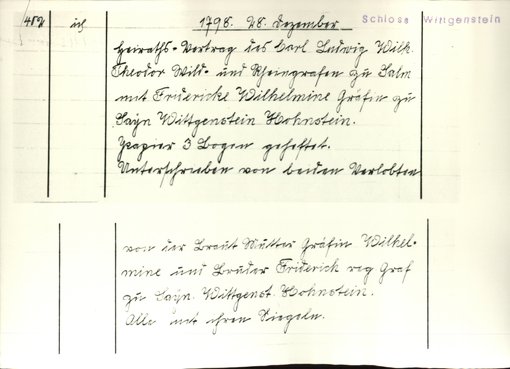 482 ich 1798. 28. Dezember Schloss Wittgenstein
Heiraths-Vertrag des Carl Ludwig Wilh.
Theodor Wild- und Rheingrafen zu Salm
mit Fridericke Wilhelmine Gräfin zu
Sayn Wittgenstein Hohnstein.
Papier 3 Bogen geheftet.
Unterschrieben von beiden Verlobten
von der Braut Mutter Gräfin Wilhel-
mine und Bruder Friderich reg Graf
zu Sayn. Wittgenst. Hohnstein.
Alle mit ihren Siegeln.